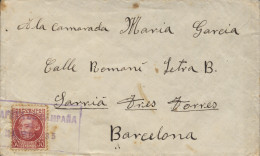 A la camarada Maria Garcia
Calle Romaní Letra B.
Sarriá Tres Torres
Barcelona
CAMPAÑA